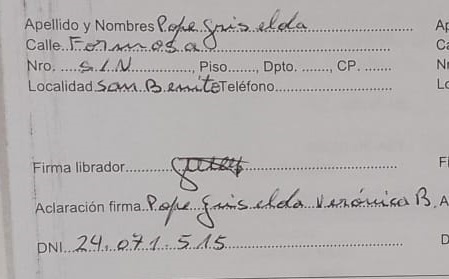 Apellido y Nombres Pope Griselda Ap
Calle Formosa Ca
Nro. S/N, Piso......., Dpto. ........, CP. ....... Nr
Localidad San Benito Teléfono Lo
Firma librador Fi
Aclaración firma Pope Griselda Verónica B. A
DNI 24.071.515 D